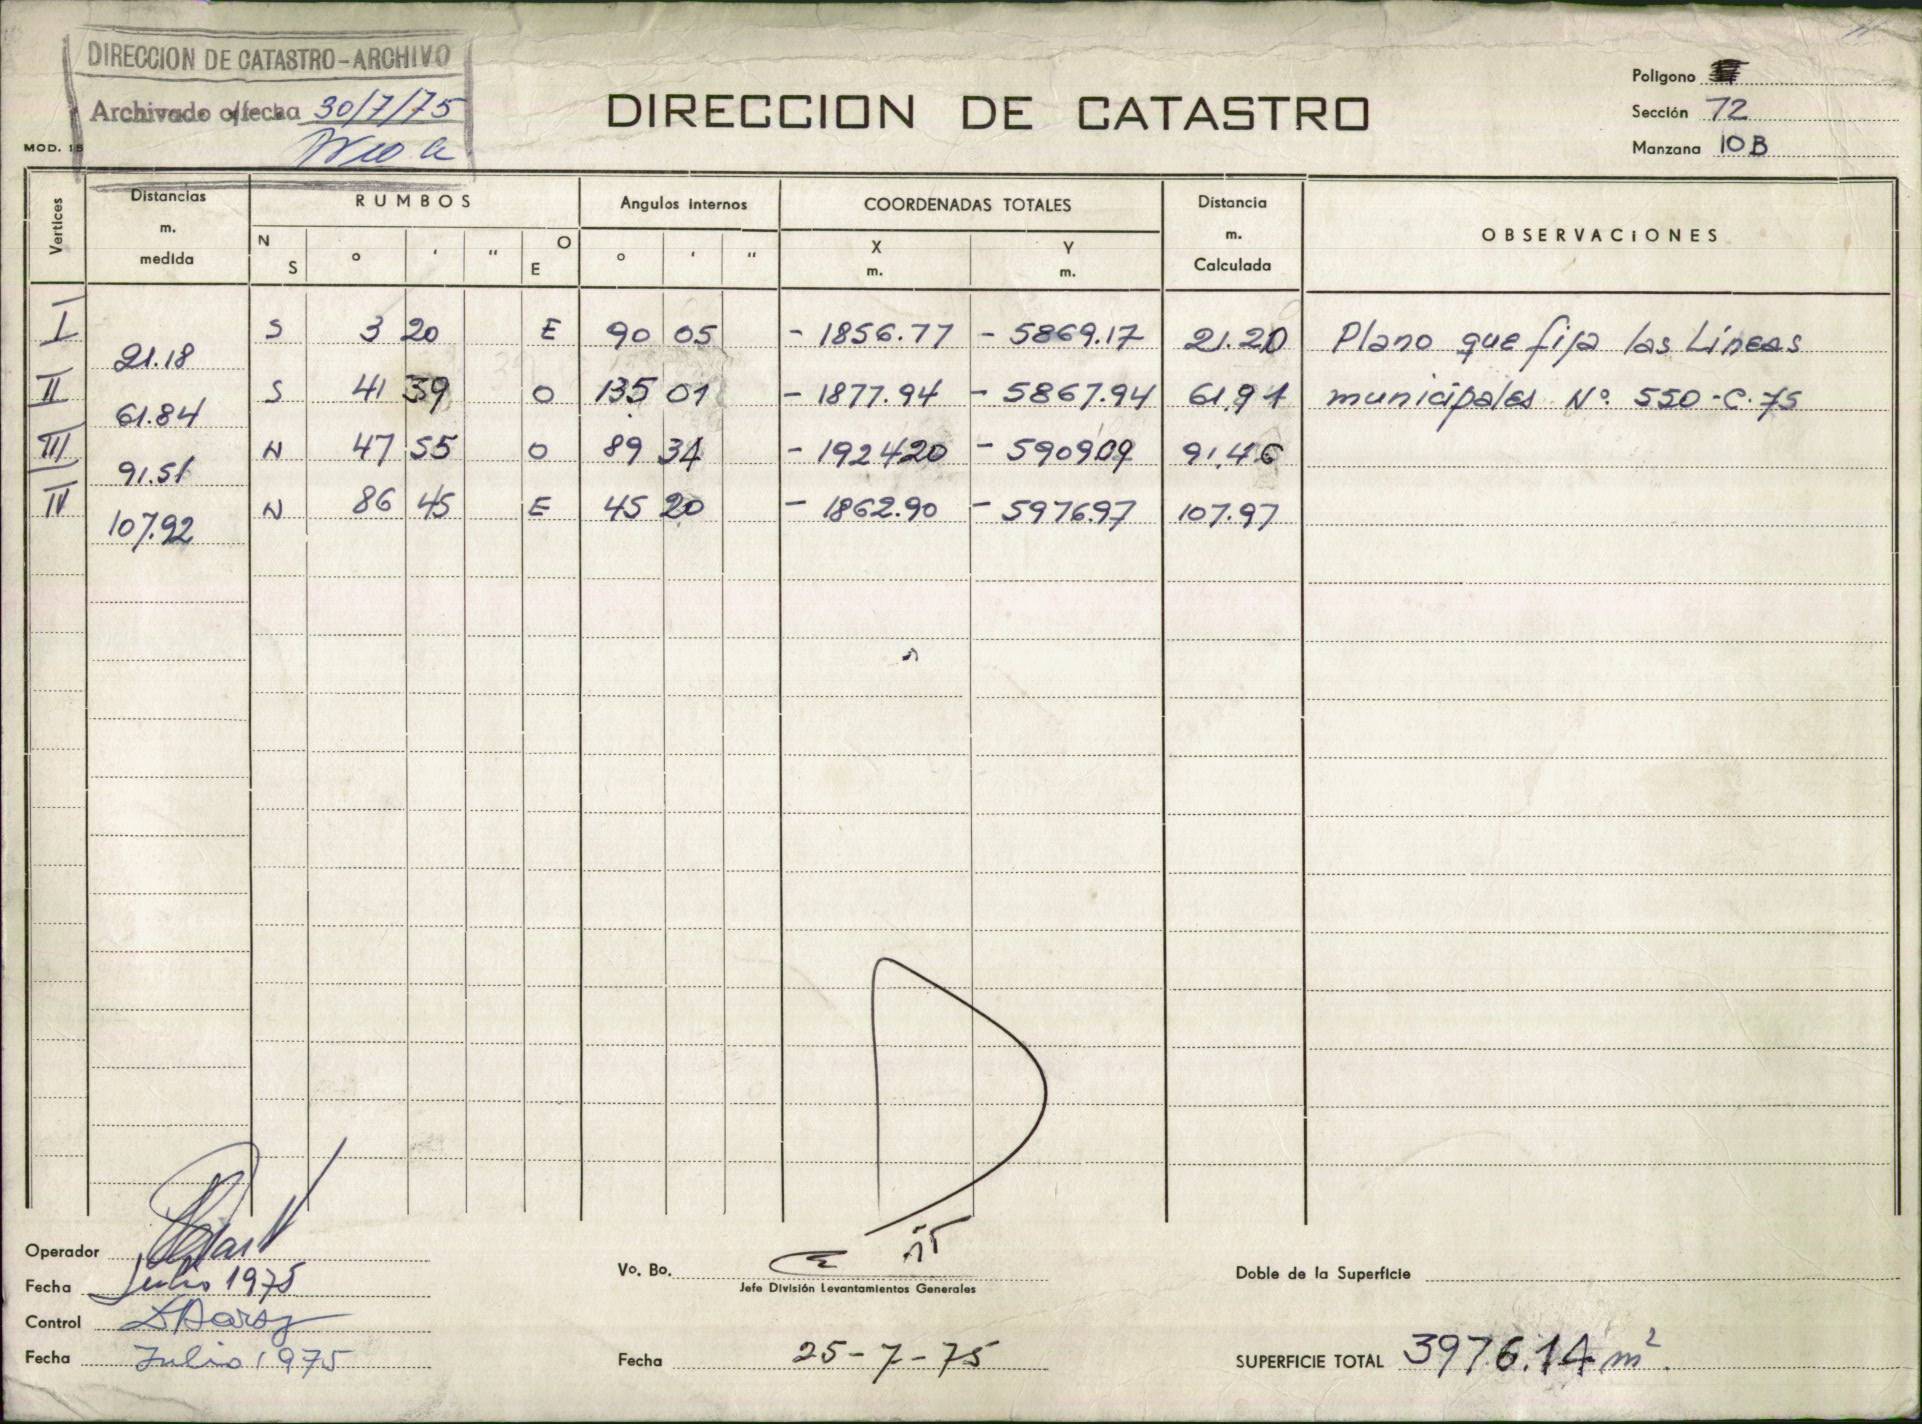 DIRECCION DE CATASTRO-ARCHIVO
Archivado c/fecha 30/7/75
MOD. 15
DIRECCION DE CATASTRO
Poligono
Sección 72
Manzana 10B
Vertices
Distancias m. medida
RUMBOS
N S ° ' " O E
Angulos internos
° ' "
COORDENADAS TOTALES
X m. Y m.
Distancia m. Calculada
OBSERVACIONES
I 21.18 S 3 20 E 90 05 - 1856.77 - 5869.17 21.20 Plano que fija las Líneas
II 61.84 S 41 39 O 135 01 - 1877.94 - 5867.94 61.91 municipales Nº. 550-C-75
III 91.51 N 47 55 O 89 34 - 1924.20 - 5909.09 91.46
IV 107.92 N 86 45 E 45 20 - 1862.90 - 5976.97 107.97
Operador
Fecha Julio 1975
Control
Fecha Julio 1975
Vo. Bo.
Jefe División Levantamientos Generales
Fecha 25-7-75
Doble de la Superficie
SUPERFICIE TOTAL 3976.14 m².